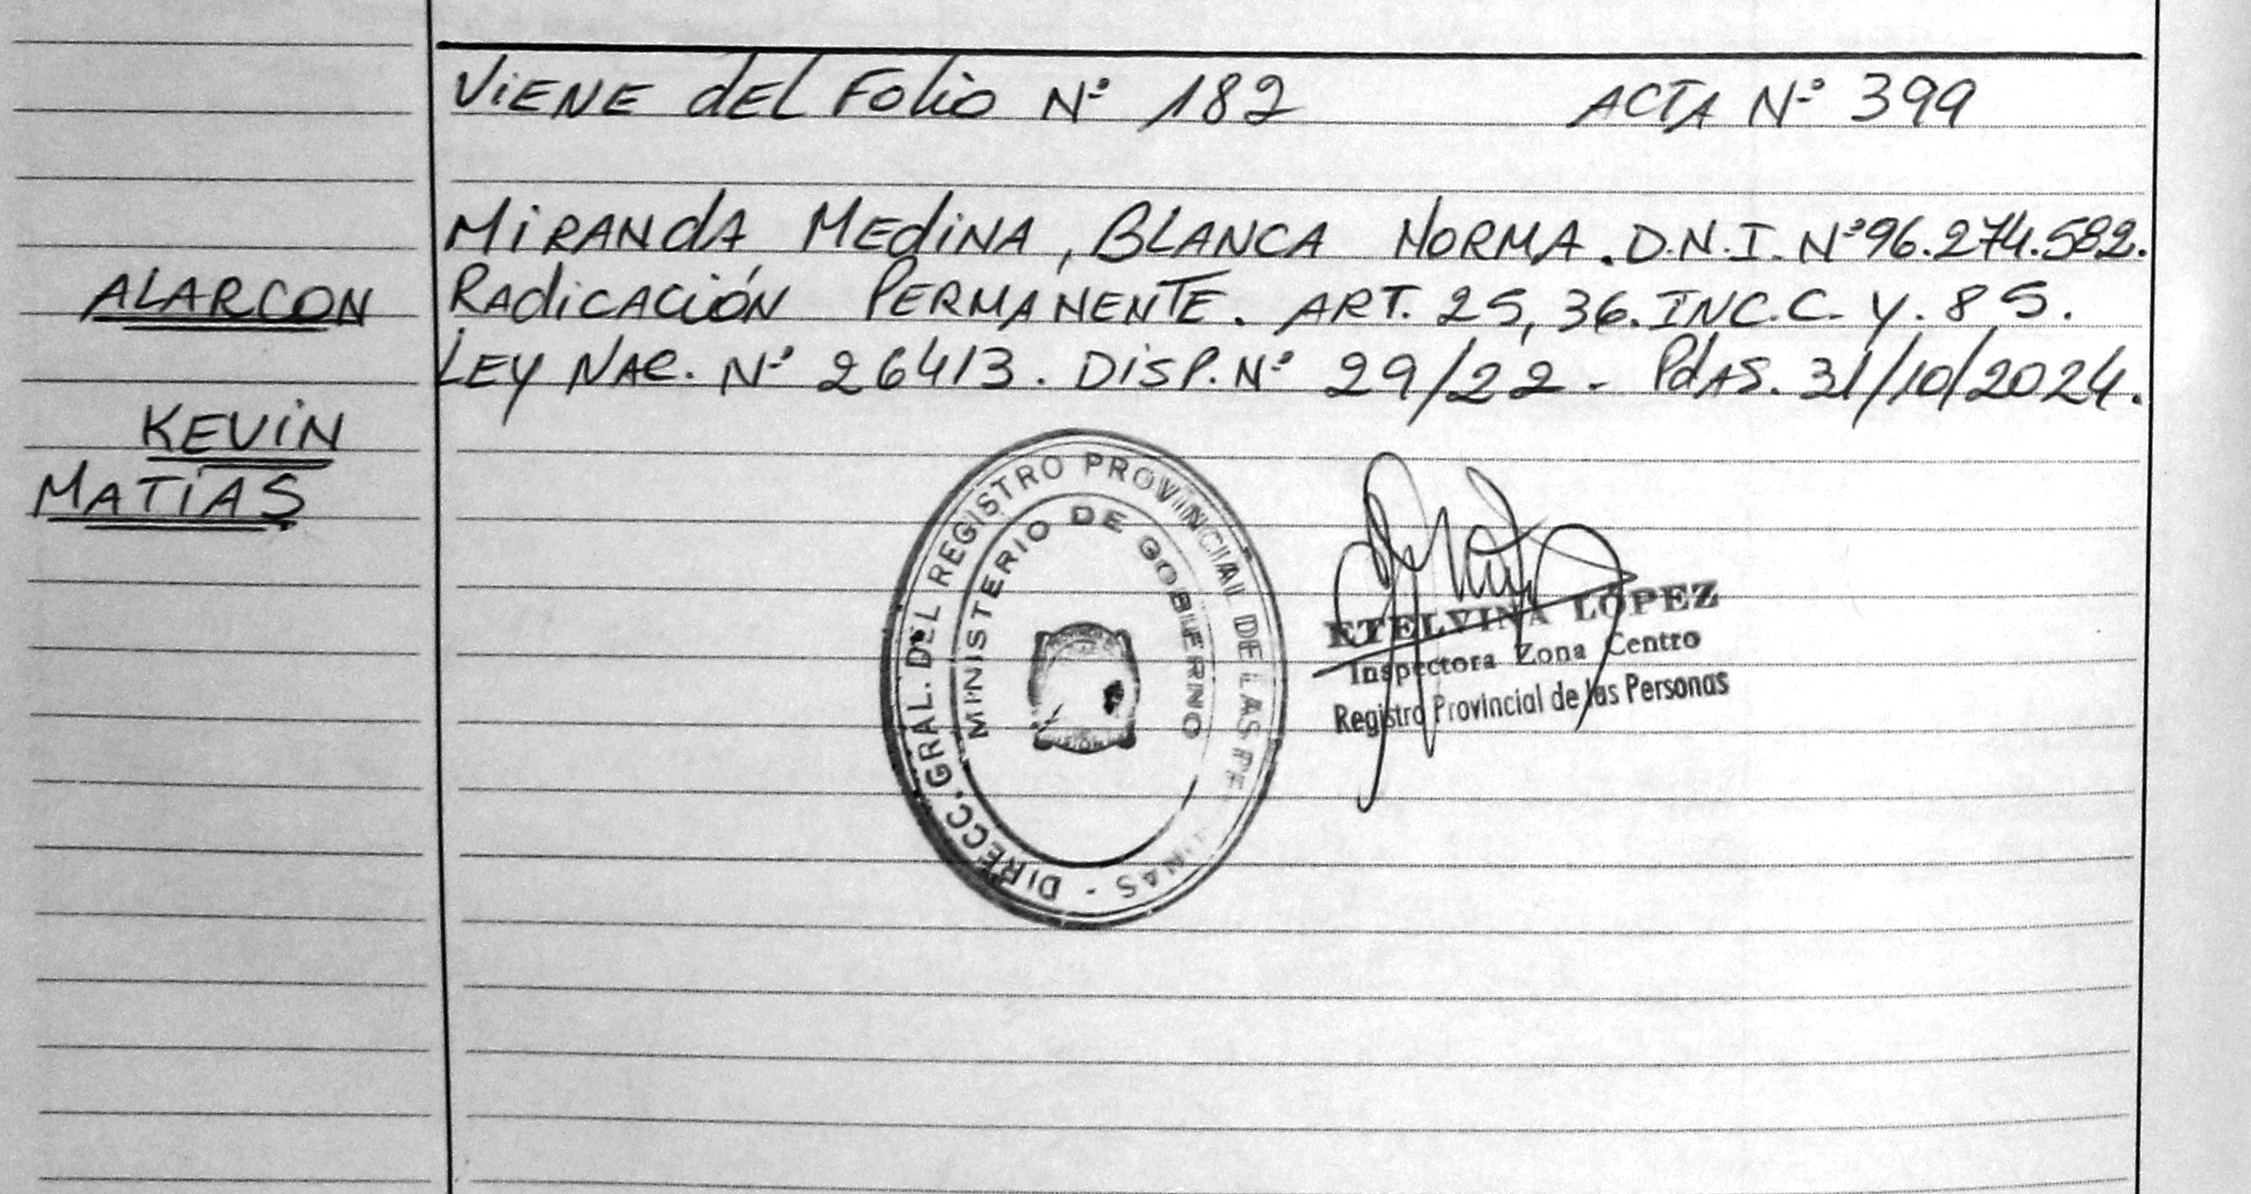 ViENE dEL Folio Nº 182 ACTA Nº 399
MiRANdA MEdiNA, BLANCA NORMA. D.N.I. Nº 96.274.582.
ALARCON
RAdiCACiÓN PERMANENTE. ART. 25, 36. INC.C. Y. 85.
LEY NAC. Nº 26413. DiSP. Nº 29/22 - PdAS. 31/10/2024.
KEViN
MATÍAS
DIRECC. GRAL. DEL REGISTRO PROVINCIAL DE LAS PE NAS -
MINISTERIO DE GOBIERNO
ETELVINA LOPEZ
Inspectora Zona Centro
Registro Provincial de las Personas